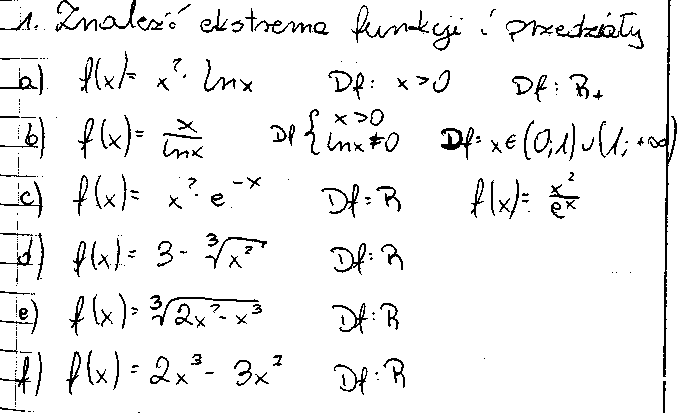 1. Znaleźć ekstrema funkcji i przedziały
a) f(x)= x²· lnx Df: x>0 Df: R₊
b) f(x)= x/lnx Df { x>0 lnx≠0 Df= x∈(0;1)∪(1;+∞)
c) f(x)= x²·e⁻ˣ Df=R f(x)= x²/eˣ
d) f(x)= 3-∛x² Df:R
e) f(x)=∛2x²-x³ Df:R
f) f(x)=2x³-3x² Df:R